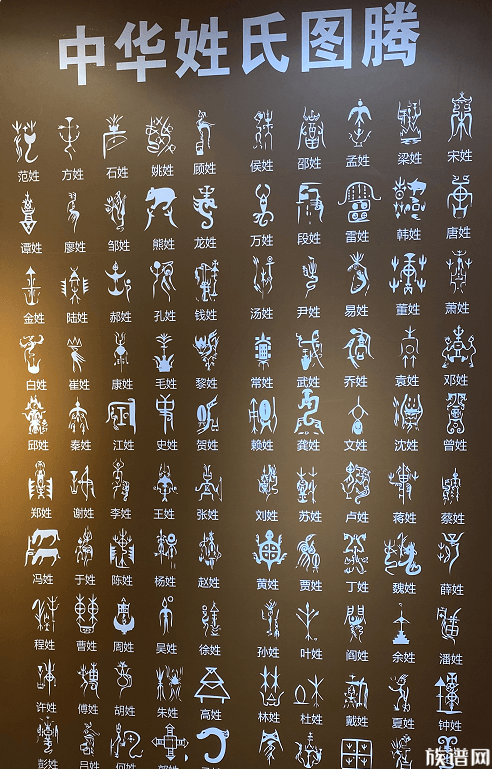 中华姓氏图腾
范姓 方姓 石姓 姚姓 顾姓 侯姓 邵姓 孟姓 梁姓 宋姓
谭姓 廖姓 邹姓 熊姓 龙姓 万姓 段姓 雷姓 韩姓 唐姓
金姓 陆姓 郝姓 孔姓 钱姓 汤姓 尹姓 易姓 董姓 萧姓
白姓 崔姓 康姓 毛姓 黎姓 常姓 武姓 乔姓 袁姓 邓姓
邱姓 秦姓 江姓 史姓 贺姓 赖姓 龚姓 文姓 沈姓 曾姓
郑姓 谢姓 李姓 王姓 张姓 刘姓 苏姓 卢姓 蒋姓 蔡姓
冯姓 于姓 陈姓 杨姓 赵姓 黄姓 贾姓 丁姓 魏姓 薛姓
程姓 曹姓 周姓 吴姓 徐姓 孙姓 叶姓 阎姓 余姓 潘姓
许姓 傅姓 胡姓 朱姓 高姓 林姓 杜姓 戴姓 夏姓 钟姓
彭姓 吕姓 何姓
族谱网